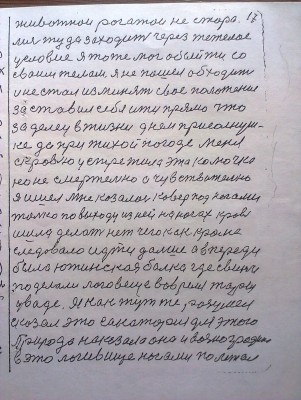 17
животной рогатой не створи.
мия туда заходит через тяжелое
условие я тоже мог обыйти со
своим телам. я не пошел обходить
и не стал изменят свое положения
заставил себя ити прямо что
за делец в жизни днем при солнуш-
ке да при тихой погоде меня
сировно устрежила эта колючко
но не смертелно а чувствително
я ишел мне козалос ковер под ногами
толко по выходу из ней на ногах кров
ишла делат нет чего как кроме
следовало идти далше а впереди
была ютинская балка где свиньи
поделали логовеще
уваде. я как тут те, розумел
сказал это санатория для этого
Природа наказала она и вознаградит
в это логивище ногами полезал